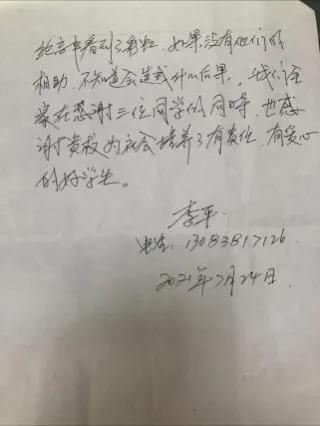 绝高中看到了彩虹，如果没有他们的
相助，不知道会造成什么后果，我们全
家在感谢三位同学的同时，也感
谢贵校为社会培养了有责任、有爱心
的好学生。
李平
电话：13083817126
2021年7月24日